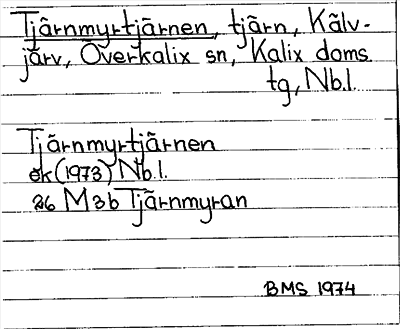 Tjärnmyrtjärnen, tjärn, Kälv-
järv, Överkalix sn, Kalix doms.
tg, Nb.l.
Tjärnmyrtjärnen
ek (1973) Nb.l.
26 M 3b Tjärnmyran
BMS 1974